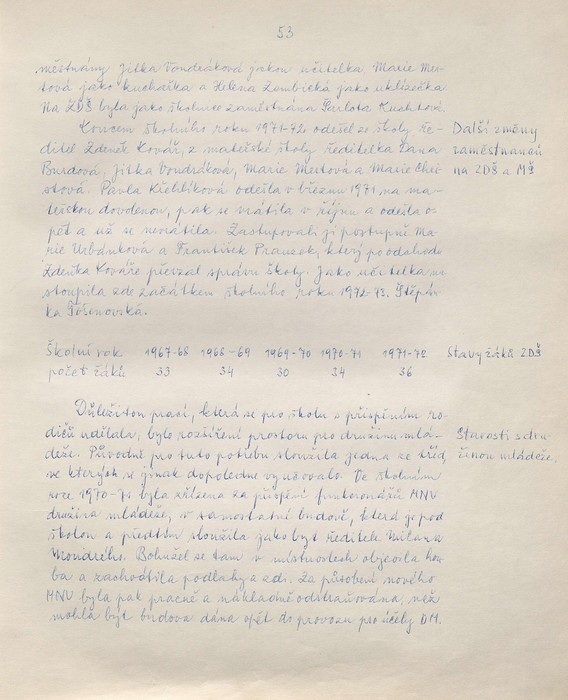 53
městnány Jitka Vondráková jakou učitelka Marie Mer-
tová jako kuchařka a Helena Zambická jako uklízečka
Na ZDŠ byla jako školnice zaměstnána Šarlota Kuchtová.
Koncem školního roku 1971-72 odešel ze školy ře-
ditel Zdeněk Kovář, z mateřské školy ředitelka Dana
Burdová, Jitka Vondráková, Marie Mertová a Marie
stová. Pavla odešla v březnu 1971 na ma-
teřskou dovolenou, pak se vrátila v říjnu a odešla o-
pět a už se nevrátila. Zastupovali ji postupně Ma-
rie Urbánková a František který po odchodu
Zdeňka Kováře převzal správu školy. Jako učitelka na-
stoupila zde začátkem školního roku 1972-73. Štěpán-
ka Tošenovská.
Další změny
zaměstnanců
na ZDŠ a MŠ
Školní rok 1967-68 1968-69 1969-70 1970-71 1971-72
počet žáků 33 34 30 34 36
Stavy žáků ZDŠ
Důležitou prací, která se pro školu s přispěním ro-
dičů udělala, bylo rozšíření prostoru pro družinu mlá-
deže. Původně pro tuto potřebu sloužila jedna ze tříd,
ve kterých se jinak dopoledne vyučovalo. Ve školním
roce 1970-71 byla zřízena za přispění funkcionářů MNV
družina mládeže, v samostatní budově, která je pod
školou a předtím sloužila jako byt ředitele Milana
Mondřího. Bohužel se tam v místnostech objevila hou-
ba a zachvátila podlahy a zdi. Za působení nového
MNV byla pak pracně a nákladně odstraňována, než
mohla být budova dána opět do provozu pro účely DM.
Starosti s dru-
žinou mládeže.